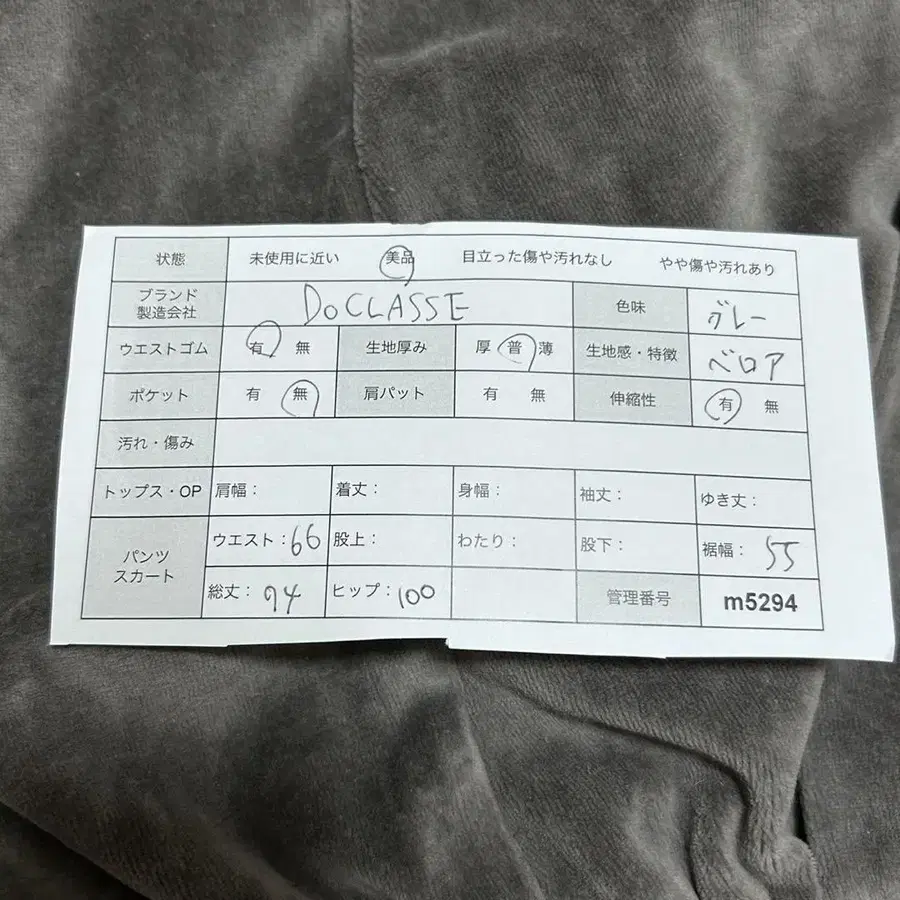 状態 未使用に近い 美品 目立った傷や汚れなし やや傷や汚れあり
ブランド
製造会社 DoCLASSE 色味 グレー
ウエストゴム 有 無 生地厚み 厚 普 薄 生地感・特徴 ベロア
ポケット 有 無 肩パット 有 無 伸縮性 有 無
汚れ・傷み
トップス・OP 肩幅: 着丈: 身幅: 袖丈: ゆき丈:
パンツ
スカート ウエスト:66 股上: わたり: 股下: 裾幅: 55
総丈: 94 ヒップ:100 管理番号 m5294